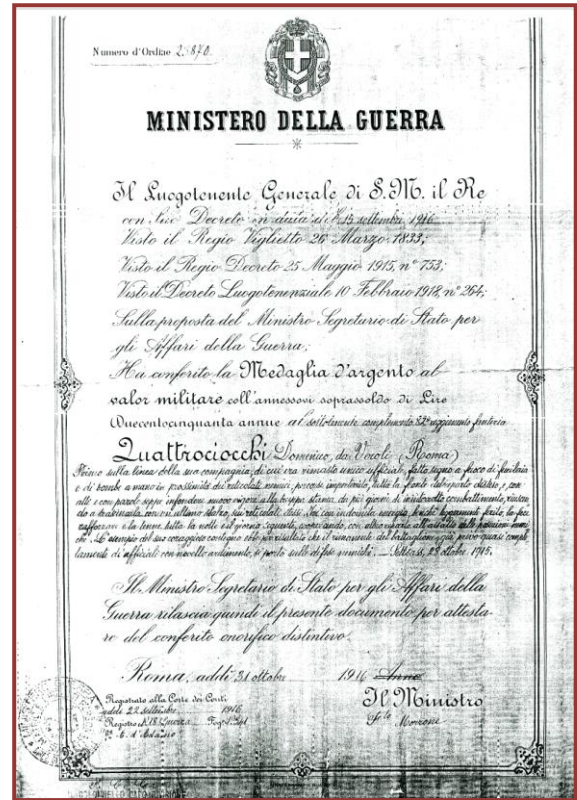 Numero d'Ordine 25870
MINISTERO DELLA GUERRA
Il Luogotenente Generale di S.M. il Re
con Suo Decreto in data del 15 settembre 1916
Visto il Regio Viglietto 26 Marzo 1833;
Visto il Regio Decreto 25 Maggio 1915, n° 753;
Visto il Decreto Luogotenenziale 10 Febbraio 1918, n° 264;
Sulla proposta del Ministro Segretario di Stato per
gli Affari della Guerra;
Ha conferito la Medaglia d'argento al
valor militare coll'annessovi soprassoldo di Lire
Duecentocinquanta annue al sottotenente complemento 82° reggimento fanteria
Quattrociocchi Domenico, da Veroli (Roma)
Primo sulla linea della sua compagnia, di cui era rimasto unico ufficiale, fatto segno a fuoco di fucileria
e di bombe a mano in prossimità dei reticolati nemici, percorse tutta la fronte del reparto, e con
atti e con parole seppe infondere nuovo vigore alla truppa stanca da più giorni di combattimento,
con un ultimo sbalzo, sui reticolati stessi. Poi con energia, benché leggermente ferito, la fece
rafforzare e la tenne tutta la notte e il giorno seguente, cooperando, con altro reparto all'assalto delle posizioni nemi
che. L'esempio del suo coraggioso contegno che il rimanente del battaglione, privo quasi comple
tamente di ufficiali con novello ardimento, si portò sulle difese nemiche. 23 ottobre 1915.
Il Ministro Segretario di Stato per gli Affari della
Guerra rilascia quindi il presente documento per attesta-
re del conferito onorifico distintivo.
Roma, addì 31 ottobre 1916 Anno
Registrato alla Corte dei Conti
addì 22 settembre 1916
Registro 18 Guerra Fog.
Il Ministro
Fto Morrone